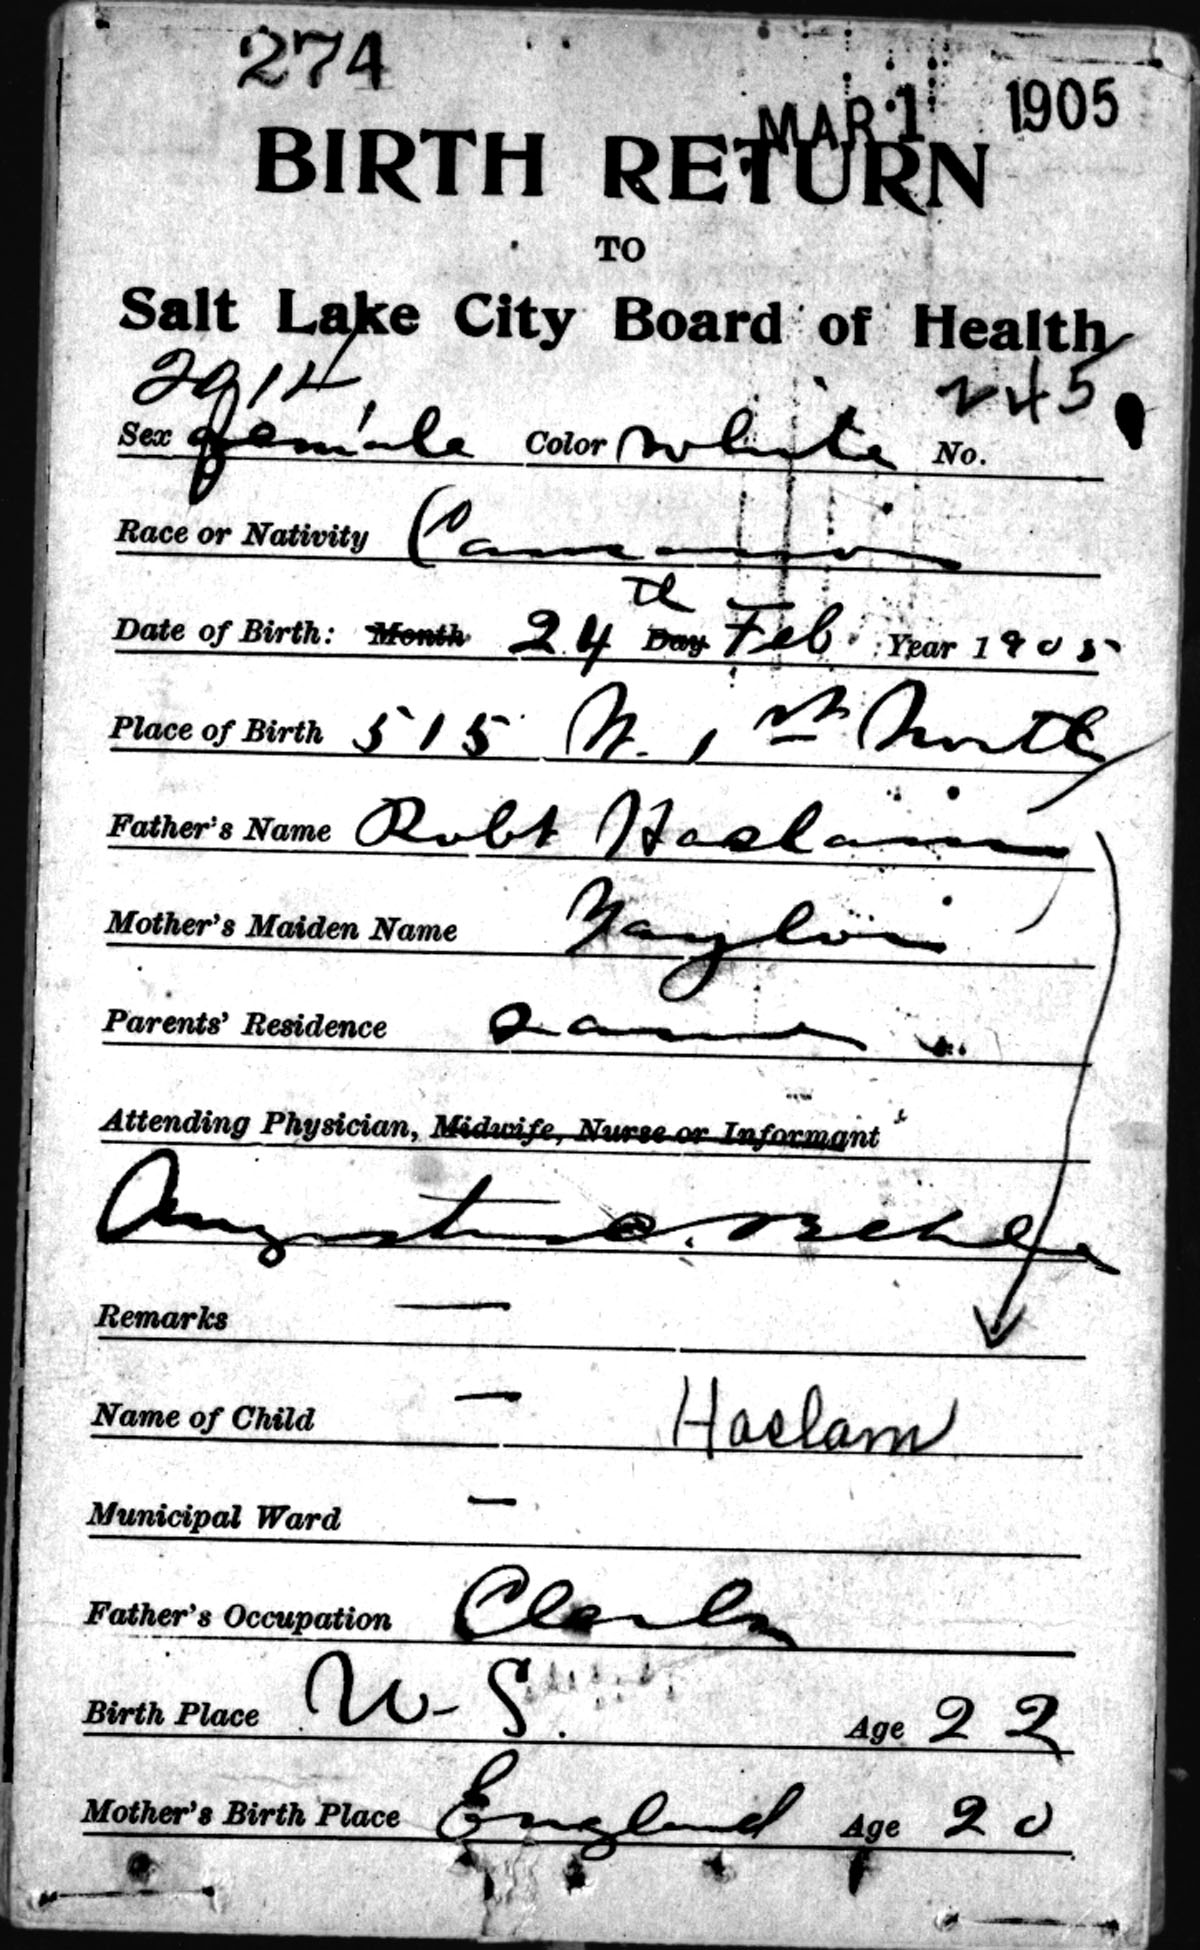 274
MAR 1 1905
BIRTH RETURN
TO
Salt Lake City Board of Health
2914 245
Sex female Color white No.
Race or Nativity
Date of Birth: Month 24 th Day Feb. Year 1905
Place of Birth 515 W. 1st North
Father's Name Robt Haslam
Mother's Maiden Name
Parents' Residence same
Attending Physician, Midwife, Nurse or Informant
August C. Behle
Remarks —
Name of Child — Haslam
Municipal Ward —
Father's Occupation Clerk
Birth Place U-S. Age 22
Mother's Birth Place England Age 20